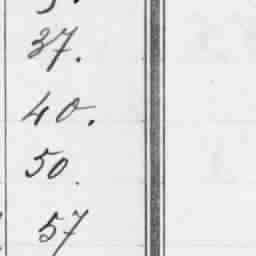 37.
40.
50.
57